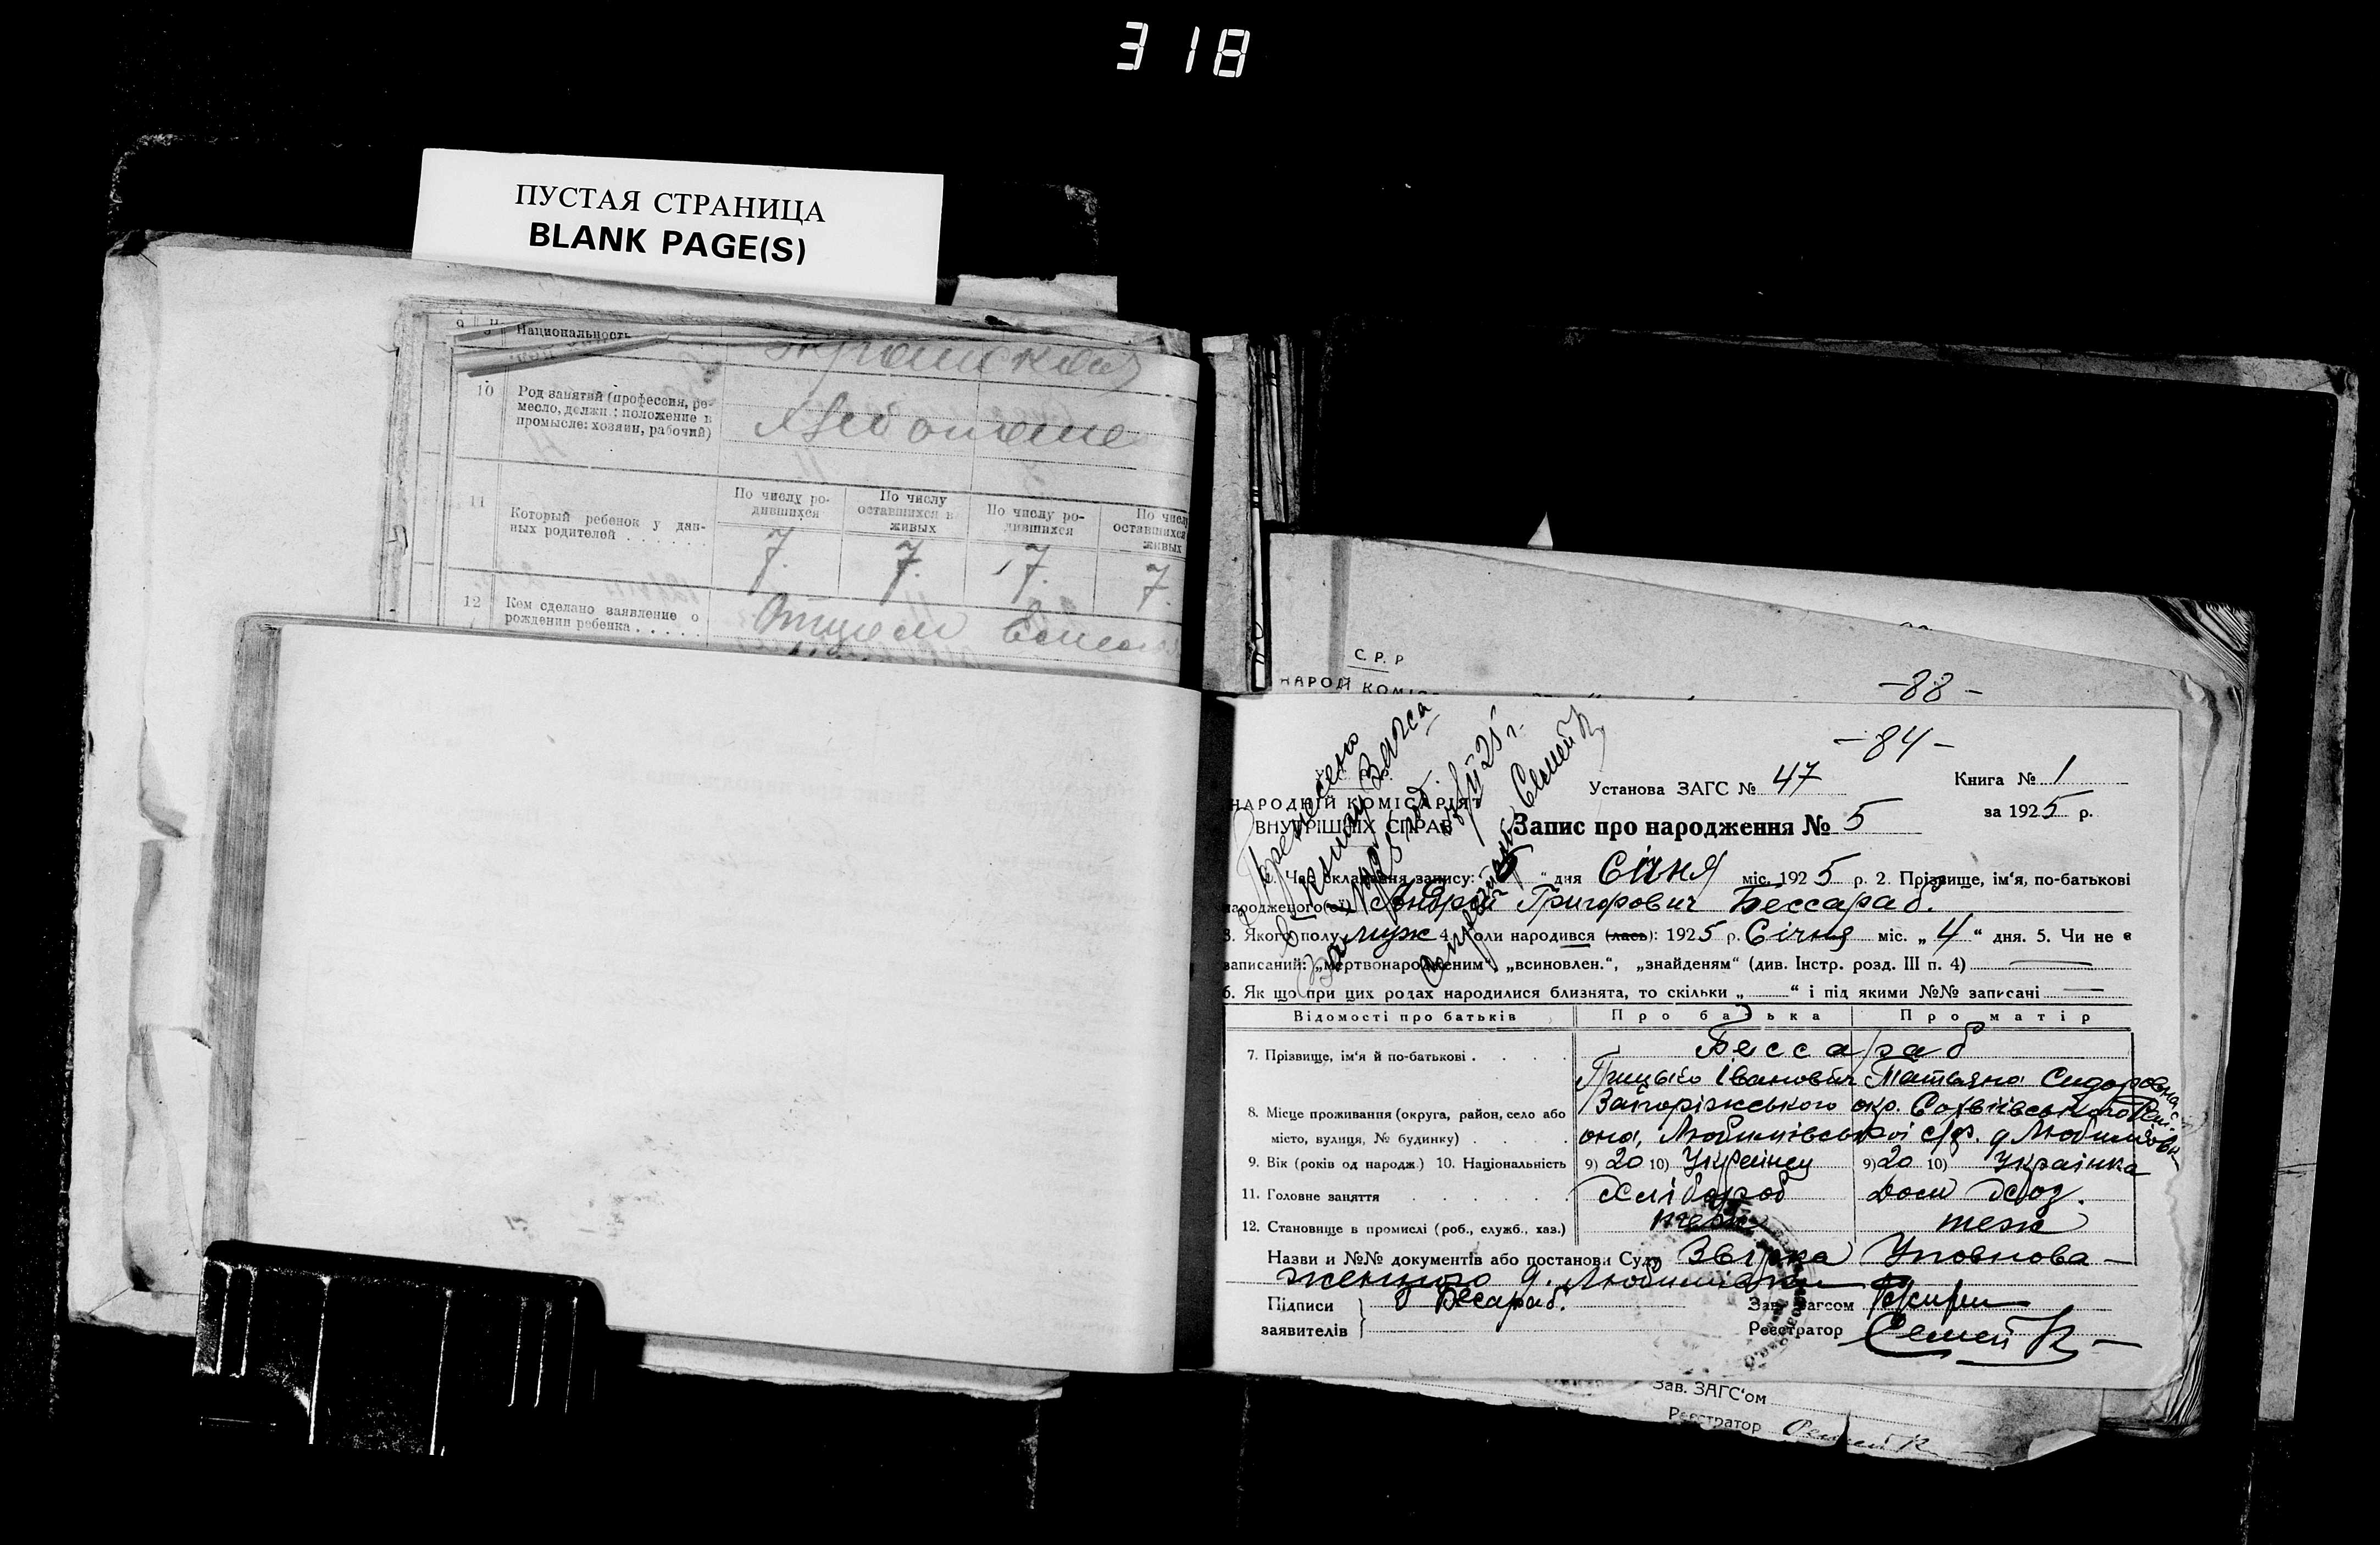 318
ПУСТАЯ СТРАНИЦА
BLANK PAGE(S)
Национальность
10 Род занятий (профессия, ре-
месло, должн.: положение в
промысле: хозяин, рабочий)
11 Который ребенок у дан-
ных родителей
По числу ро-
дившихся
По числу
оставшихся в
живых
По числу ро-
дившихся
По числу
оставшихся
живых
7. 7. 7. 7.
12 Кем сделано заявление о
рождении ребенка
С. Р. Р
НАРОД КОМІС
-88-
-84-
Перенесено
в книгу Загса
за 1925 год.
НАРОДНІЙ КОМІСАРІЯТ
ВНУТРІШНІХ СПРАВ
Установа ЗАГС № 47
Книга № 1
за 1925 р.
Запис про народження № 5
1. Час складання запису: „5“ дня Січня міс. 1925 р. 2. Прізвище, ім'я, по-батькові
народженого(ої) Андрій Григорович Бессараб.
3. Якого полу муж 4. Коли народився (лась): 1925 р. Січня міс. „4“ дня. 5. Чи не є
записаний: „мертвонародженим“, „всиновлен.“, „знайденям“ (див. Інстр. розд. III п. 4)
6. Як що при цих родах народилися близнята, то скільки „ “ і під якими №№ записані
Відомості про батьків Про батька Про матір
7. Прізвище, ім'я й по-батькові Бессараб
Грицько Іванович Татьяна Сидоровна
8. Місце проживання (округа, район, село або Запоріжського окр. Софіївського Рай-
місто, вулиця, № будинку) она, Любимівської с/р. д Любимівка
9. Вік (років од народж.) 10. Національність 9) 20 10) Українец 9) 20 10) Українка
11. Головне заняття Хлібороб Дом Хоз.
12. Становище в промислі (роб., служб., хаз.) теж
Назви и №№ документів або постанови Суду Звірка Уповнова-
женного д. Любимівки
Підписи
заявителів
Бесараб.
Зав. Загсом
Реєстратор Семей К
Зав. ЗАГС'ом
Реєстратор